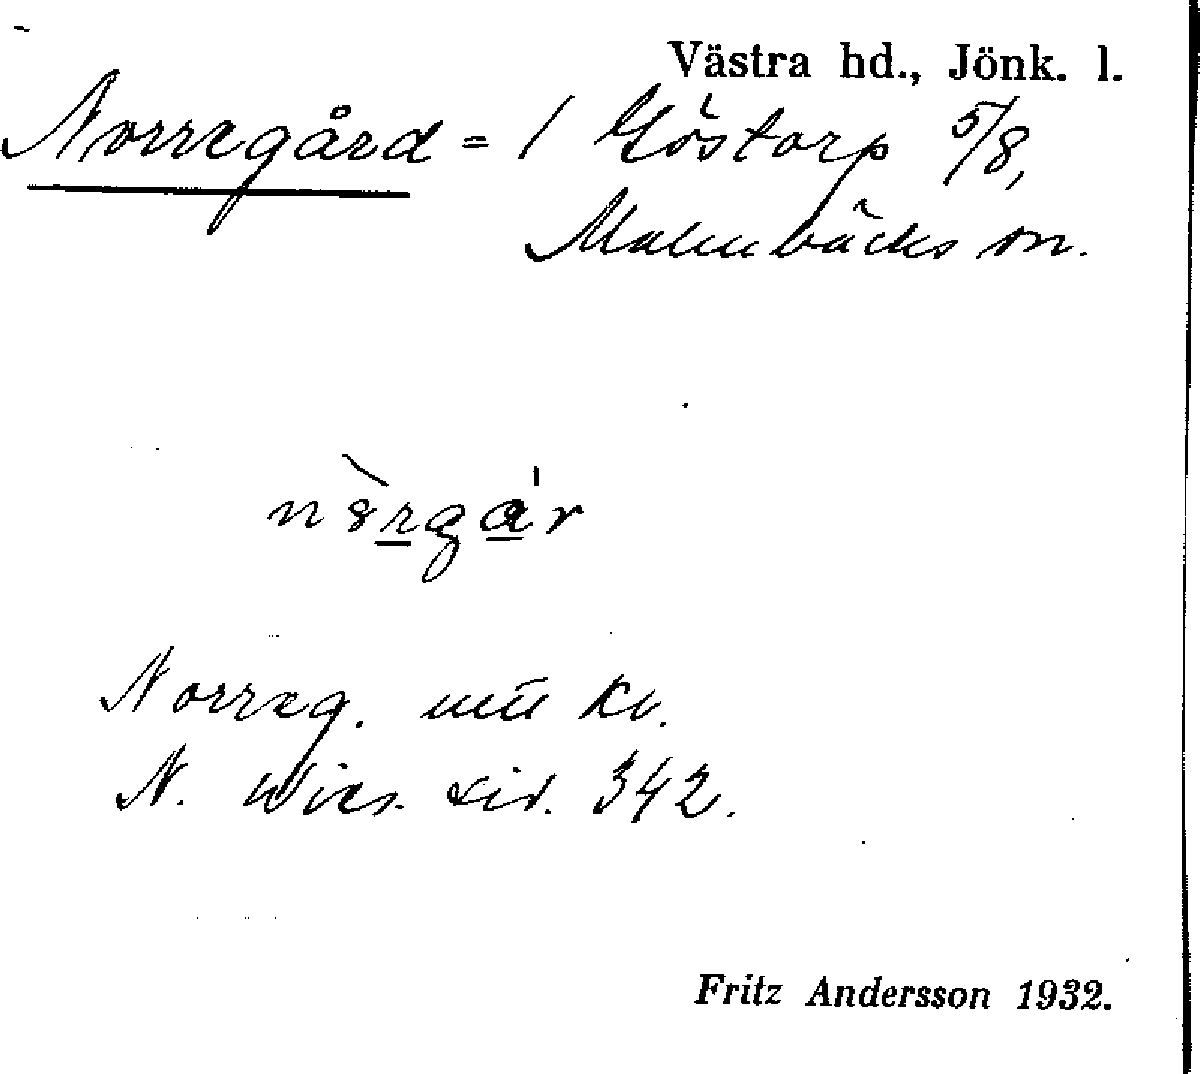 Västra hd., Jönk. l.
Norregård = 1 Göstorp 5/8,
Malmbäcks sn.
Norreg.
N. Wies. sid. 342.
Fritz Andersson 1932.